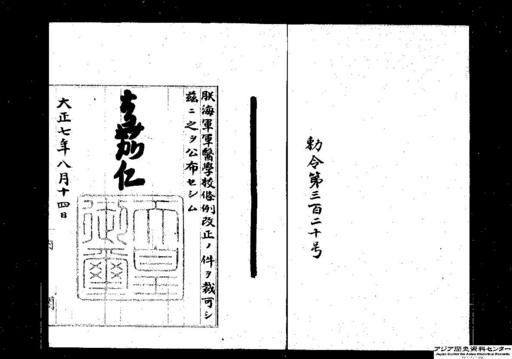 勅令第三百二十号
朕海軍軍醫學校條例改正ノ件ヲ裁可シ
茲ニ之ヲ公布セシム
嘉仁
天皇御璽
大正七年八月十四日
アジア歴史資料センター
Japan Center for Asian Historical Records